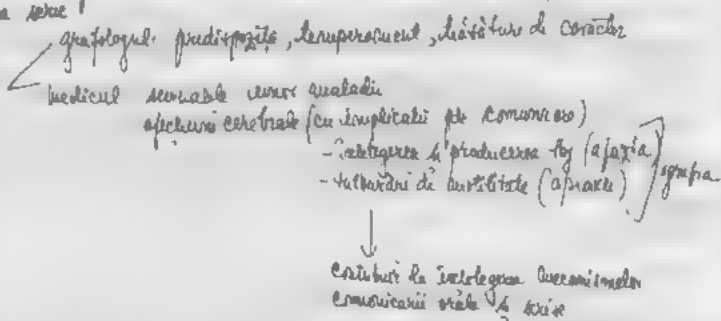 a scrie
grafologul: predispoziții, temperament, trăsături de caracter
medicul semnalele unor maladii
afecțiuni cerebrale (cu implicații pt comunicare)
- înțelegerea și producerea lbj (afazia)
- tulburări de motilitate (apraxie)
agrafia
contribuții la înțelegerea mecanismelor
comunicării orale și scrise